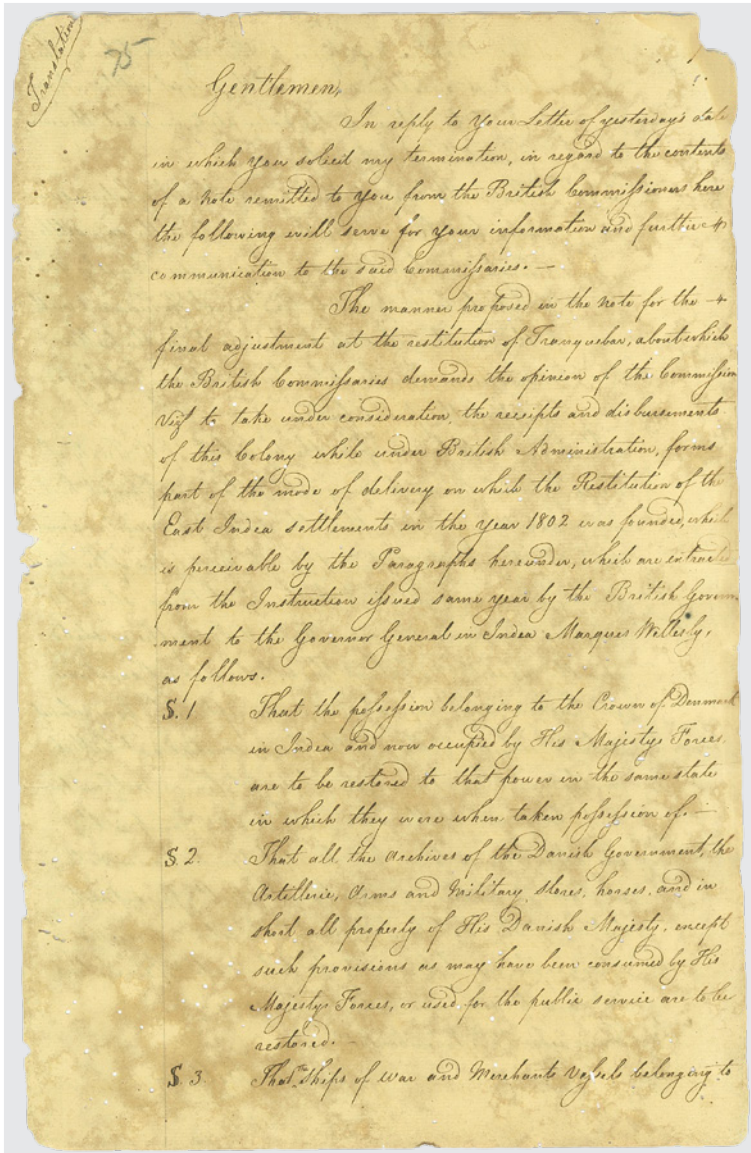 Translation
75
Gentlemen,
In reply to your Letter of yesterdays date
in which you solicit my termination, in regard to the contents
of a note remitted to you from the British Commissioners here
the following will serve for your information and further
communication to the said Commissaries. —
The manner proposed in the note for the
final adjustment at the restitution of Tranquebar, about which
the British Commissaries demands the opinion of the Commission
Vizt to take under consideration, the receipts and disbursements
of this Colony while under British Administration, forms
part of the mode of delivery on which the Restitution of the
East Indea settlements in the year 1802 was founded, which
is perceivable by the Paragraphs hereunder, which are extracted
from the Instruction issued same year by the British Govern-
ment to the Governor General in Indea Marques Wellesly,
as follows.
§. 1 That the possession belonging to the Crown of Denmark
in Indea and now occupied by His Majestys Forces
are to be restored to that power in the same state
in which they were when taken possession of. —
§. 2. That all the Archives of the Danish Government, the
Artillerie, Arms and Military stores, horses, and in
short all property of His Danish Majesty, except
such provisions as may have been consumed by His
Majestys Forces, or used for the public service are to be
restored. —
§. 3 That the Ships of War and Merchants Vessels belonging to